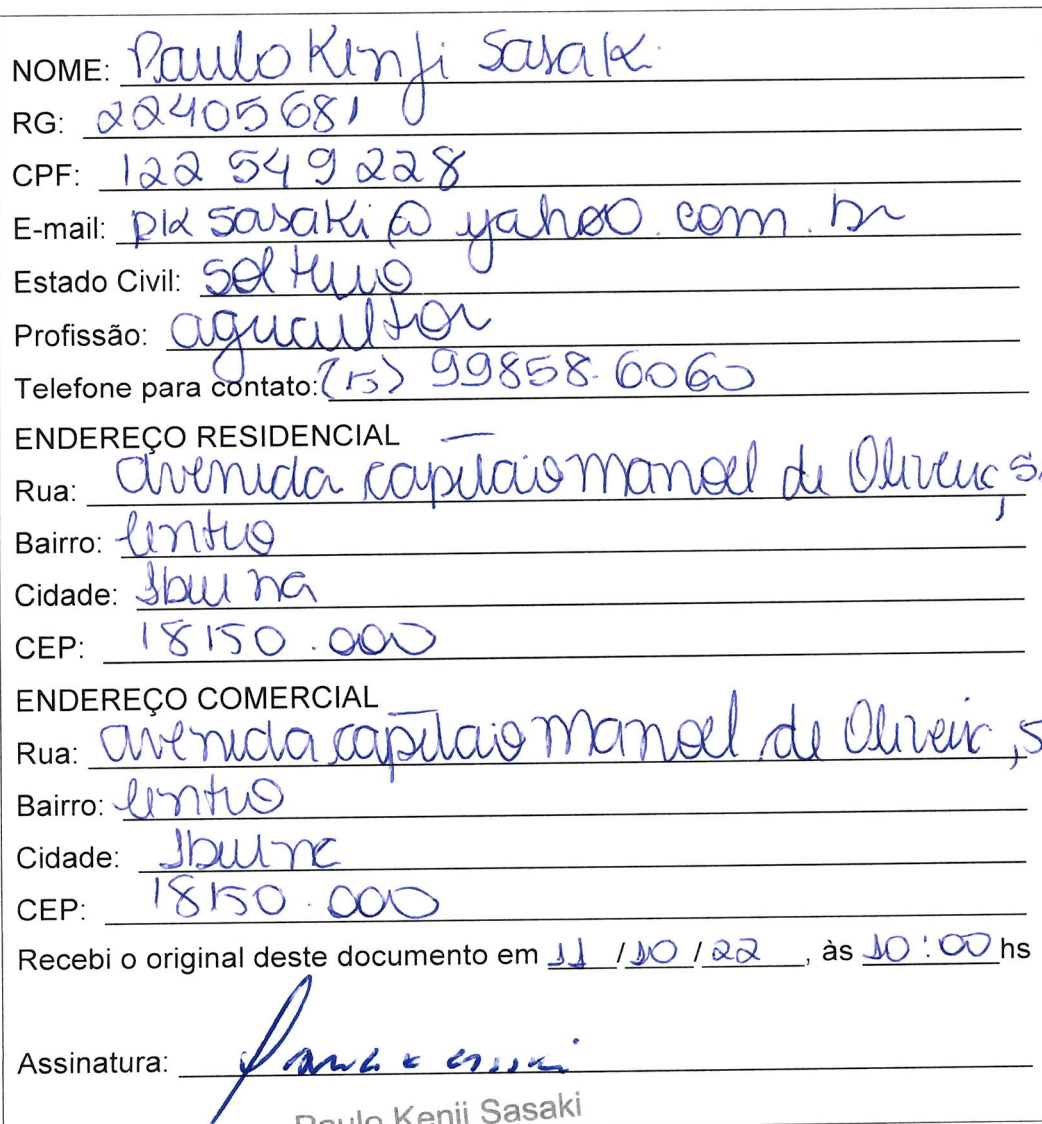 NOME: Paulo Kenji Sasaki
RG: 22405681
CPF: 122 549 228
E-mail: pksasaki@yahoo.com.br
Estado Civil: Solteiro
Profissão: agricultor
Telefone para contato: (15) 99858.6060
ENDEREÇO RESIDENCIAL
Rua: avenida capitão manoel de Oliveira, s
Bairro: Centro
Cidade: Ibiuna
CEP: 18150.000
ENDEREÇO COMERCIAL
Rua: avenida capitão manoel de Oliveira, s
Bairro: Centro
Cidade: Ibiuna
CEP: 18150.000
Recebi o original deste documento em 11/10/22, às 10:00 hs
Assinatura:
Paulo Kenji Sasaki